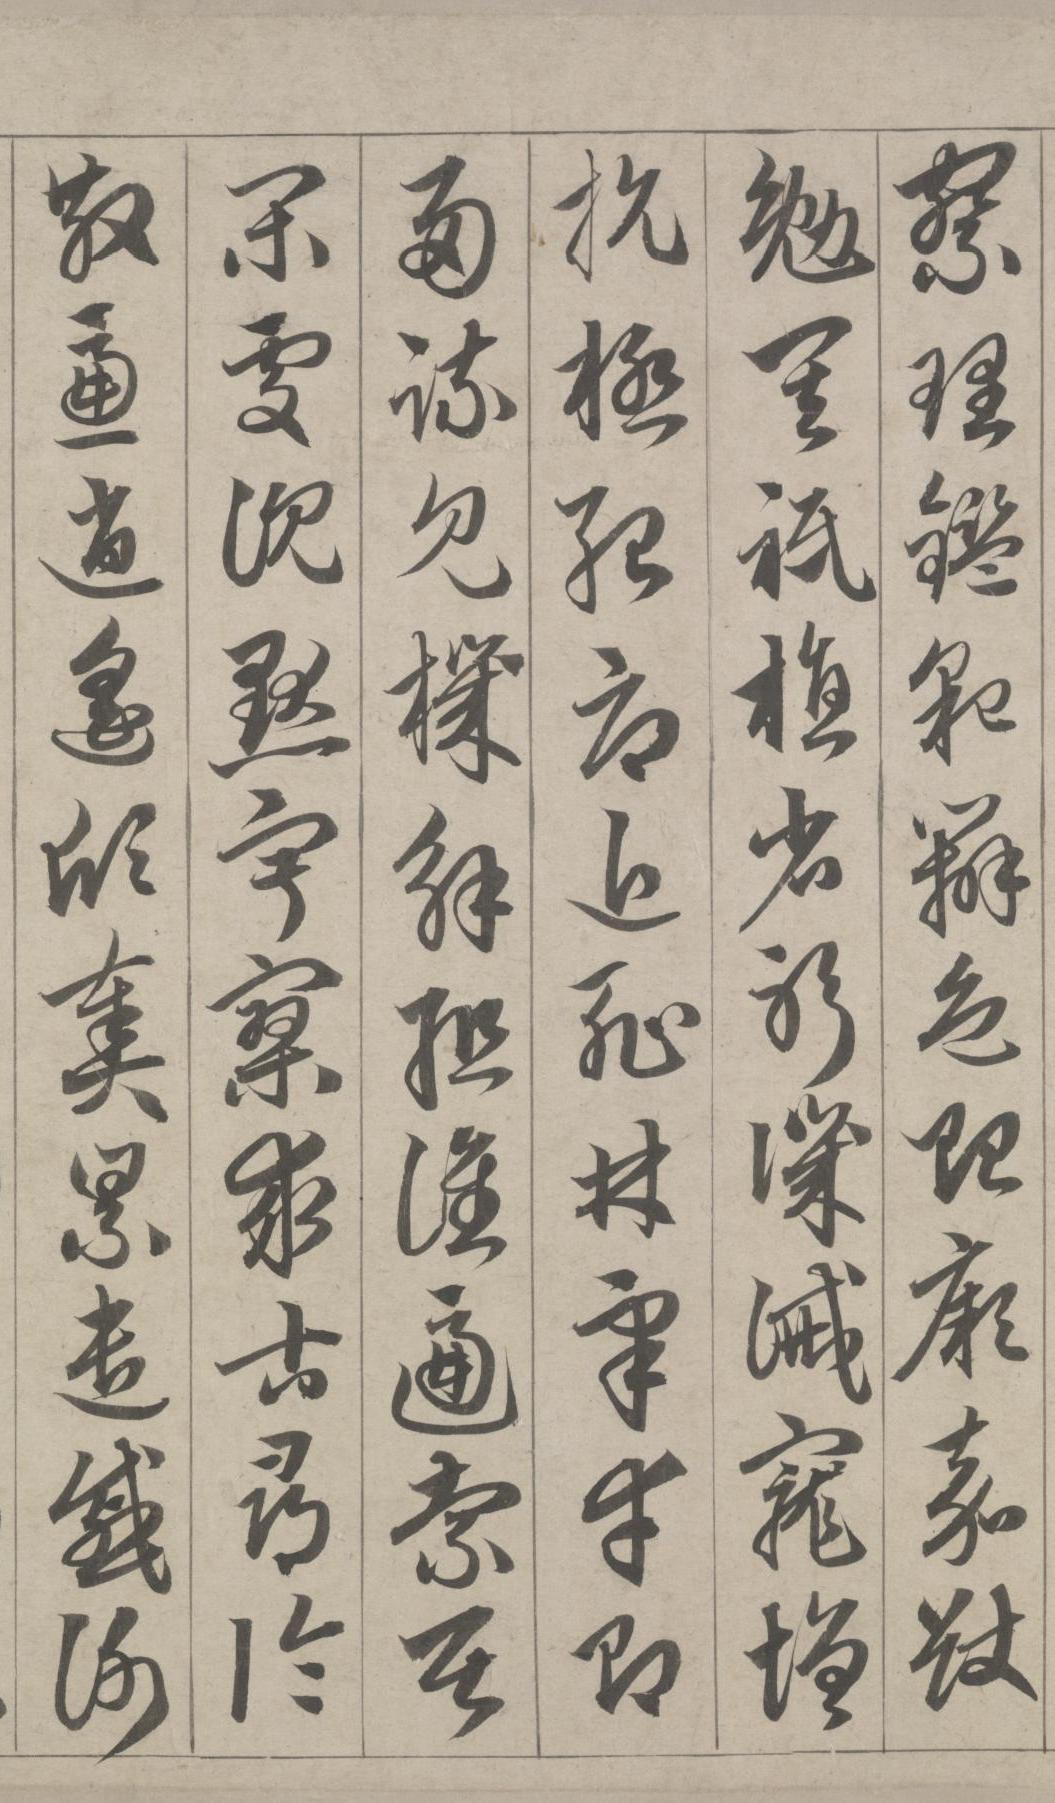 察理鑑貌辨色貽厥嘉猷
勉其祗植省躬譏誡寵增
抗極殆辱近恥林皋幸即
兩疏見機解組誰逼索居
閑處沈默寂寥求古尋論
散慮逍遙欣奏累遣慼謝